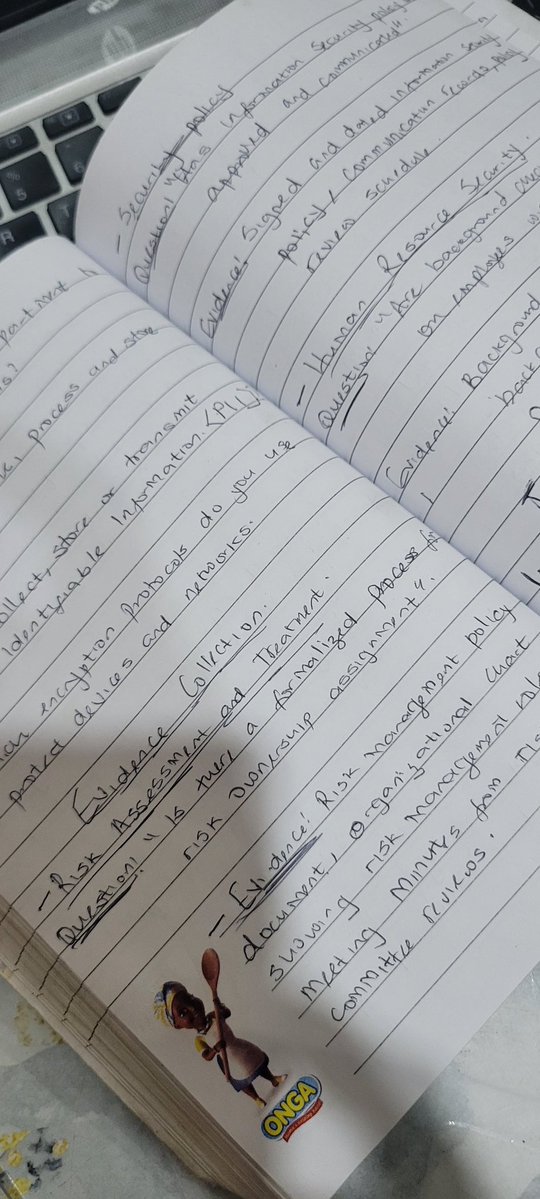 process and store
collect, store or transmit
Identifiable Information. (PII)
encryption protocols do you use
protect devices and networks.
Evidence Collection.
- Risk Assessment and Treatment.
Question: "Is there a formalized process for
risk ownership assignment".
- Evidence: Risk Management policy
document, Organizational chart
showing risk management
Meeting Minutes from
committee reviews.
ONGA
- Security policy
Question: "Has information security policy
approved and communicated".
Evidence: Signed and dated information security
policy, Communication records, policy
review schedule.
- Human Resource Security.
Question: "Are background
on employees
Evidence: Background
5
R